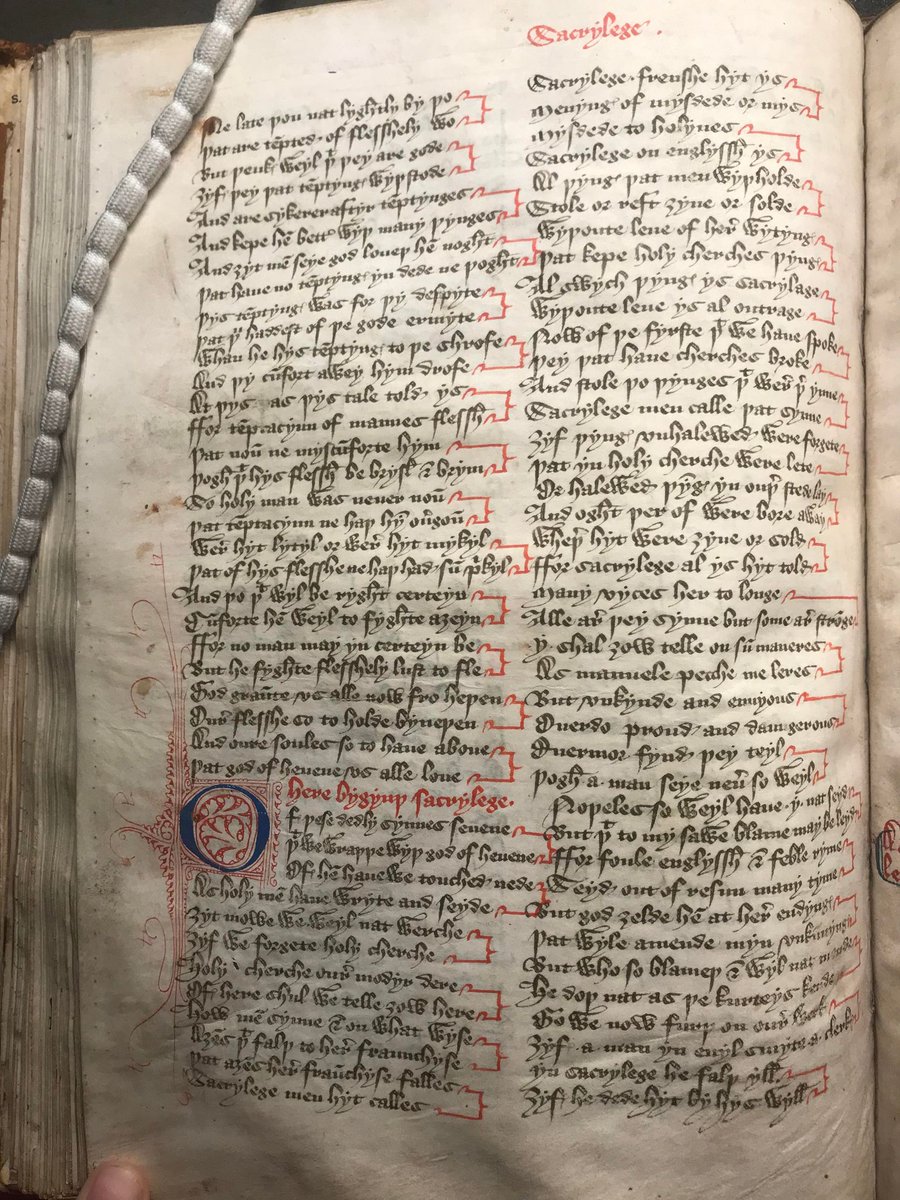 Sacrylege .
Ne late þou nat lyghtly by þo
Þat are tēpted of flesshely wo
But þenk weyl þt þey are gode
Ȝyf þey þat tēptyng wyþstode
And are sykerer aftyr temptynges
And kepe hē bettr wyþ many þynges
And ȝyt mē seye god loueþ hē noght
Þat haue no tēptyng yn dede ne þoght
Þys temptyng was for þy despyte
Þat þu haddest of þe gode ermyte
Whan he hys tēptyng to þe shrofe
And þy cūfort awey hym drofe
At þys as þys tale told ys
Ffor tēptacyun of mannes flessh
Þat noū ne myscūforte hym
Þogh þt hys flessh be brysk & brym
So holy man was neuer noū
Þat tēptacyun ne haþ hȳ ouergoū
Wer hyt lytyl or wer hyt mykyl
Þat of hys flesshe ne haþ had sū prykyl
And þo þt wyl be ryght certeyn
Cūforte hē weyl to fyghte aȝeyn
Ffor no man may yn certeyn be
But he fyghte flesshely lust to fle
God graūte vs alle now fro heþen
Our flesshe so to holde byneþen
And oure soules so to haue aboue
Þat god of heuene vs alle loue
here bygynþ sacrylege.
Of þese dedly synnes seuene
Þt we wraþþe wyþ god of heuene
Of hē haue we touched nede
As holy mē haue wryte and seyde
Ȝyt mowe we weyl nat werche
Ȝyf we forgete holy cherche
Holy cherche our modyr dere
Of here shul we telle ȝow here
How mē synne & on what wyse
Aȝēs þt falþ to her fraunchyse
Þat aȝēs her fraūchyse falles
Sacrylege men hyt calles
Sacrylege frenshe hyt ys
Menyng of mysdede or mys
Mysdede to holynes
Sacrylege on englyssh ys
Al þyng þat men wyþholde
Stole or reft ȝyue or solde
Wyþoute leue of her wytyng
Þat kepe holy cherches þyng
Al swych þyng ys sacrylage
Wyþoute leue ys al outrage
Now of þe fyrste þt we haue spoke
Þey þat haue cherches broke
And stole þo þynges þt wer þr ynne
Sacrylege men calle þat synne
Ȝyf þyng vnhalewed were forgete
Þat yn holy cherche were lete
Or halewed þyg yn ouþr stede lay
And oght þer of were bore away
Wheþr hyt were ȝyue or sold
Ffor sacrylege al ys hyt told
Many vyces her to longe
Alle ar þey synne but some ar strōge
Y shal ȝow telle on sū maneres
As manuele pecche me leres
But vnkynde and enuyous
Ouerdo proud and daungerous
Ouermor fynd þey teyl
Þogh a man seye neuer so weyl
Noþeles so weyl haue y nat seyd
But þt to my sawe blame may be leyd
Ffor foule englyssh & feble ryme
Seyd out of resun many tyme
But god ȝelde hē at her endyng
Þat wyle amende myn vnkunnyng
But who so blameþ & wyl nat mende
He doþ nat as þe kurteys kende
Go we now furþ on our werk
Ȝyf a man yn euyl smyte a clerk
Yn sacrylege he falþ yll
Ȝyf he dede hyt by hys wyll